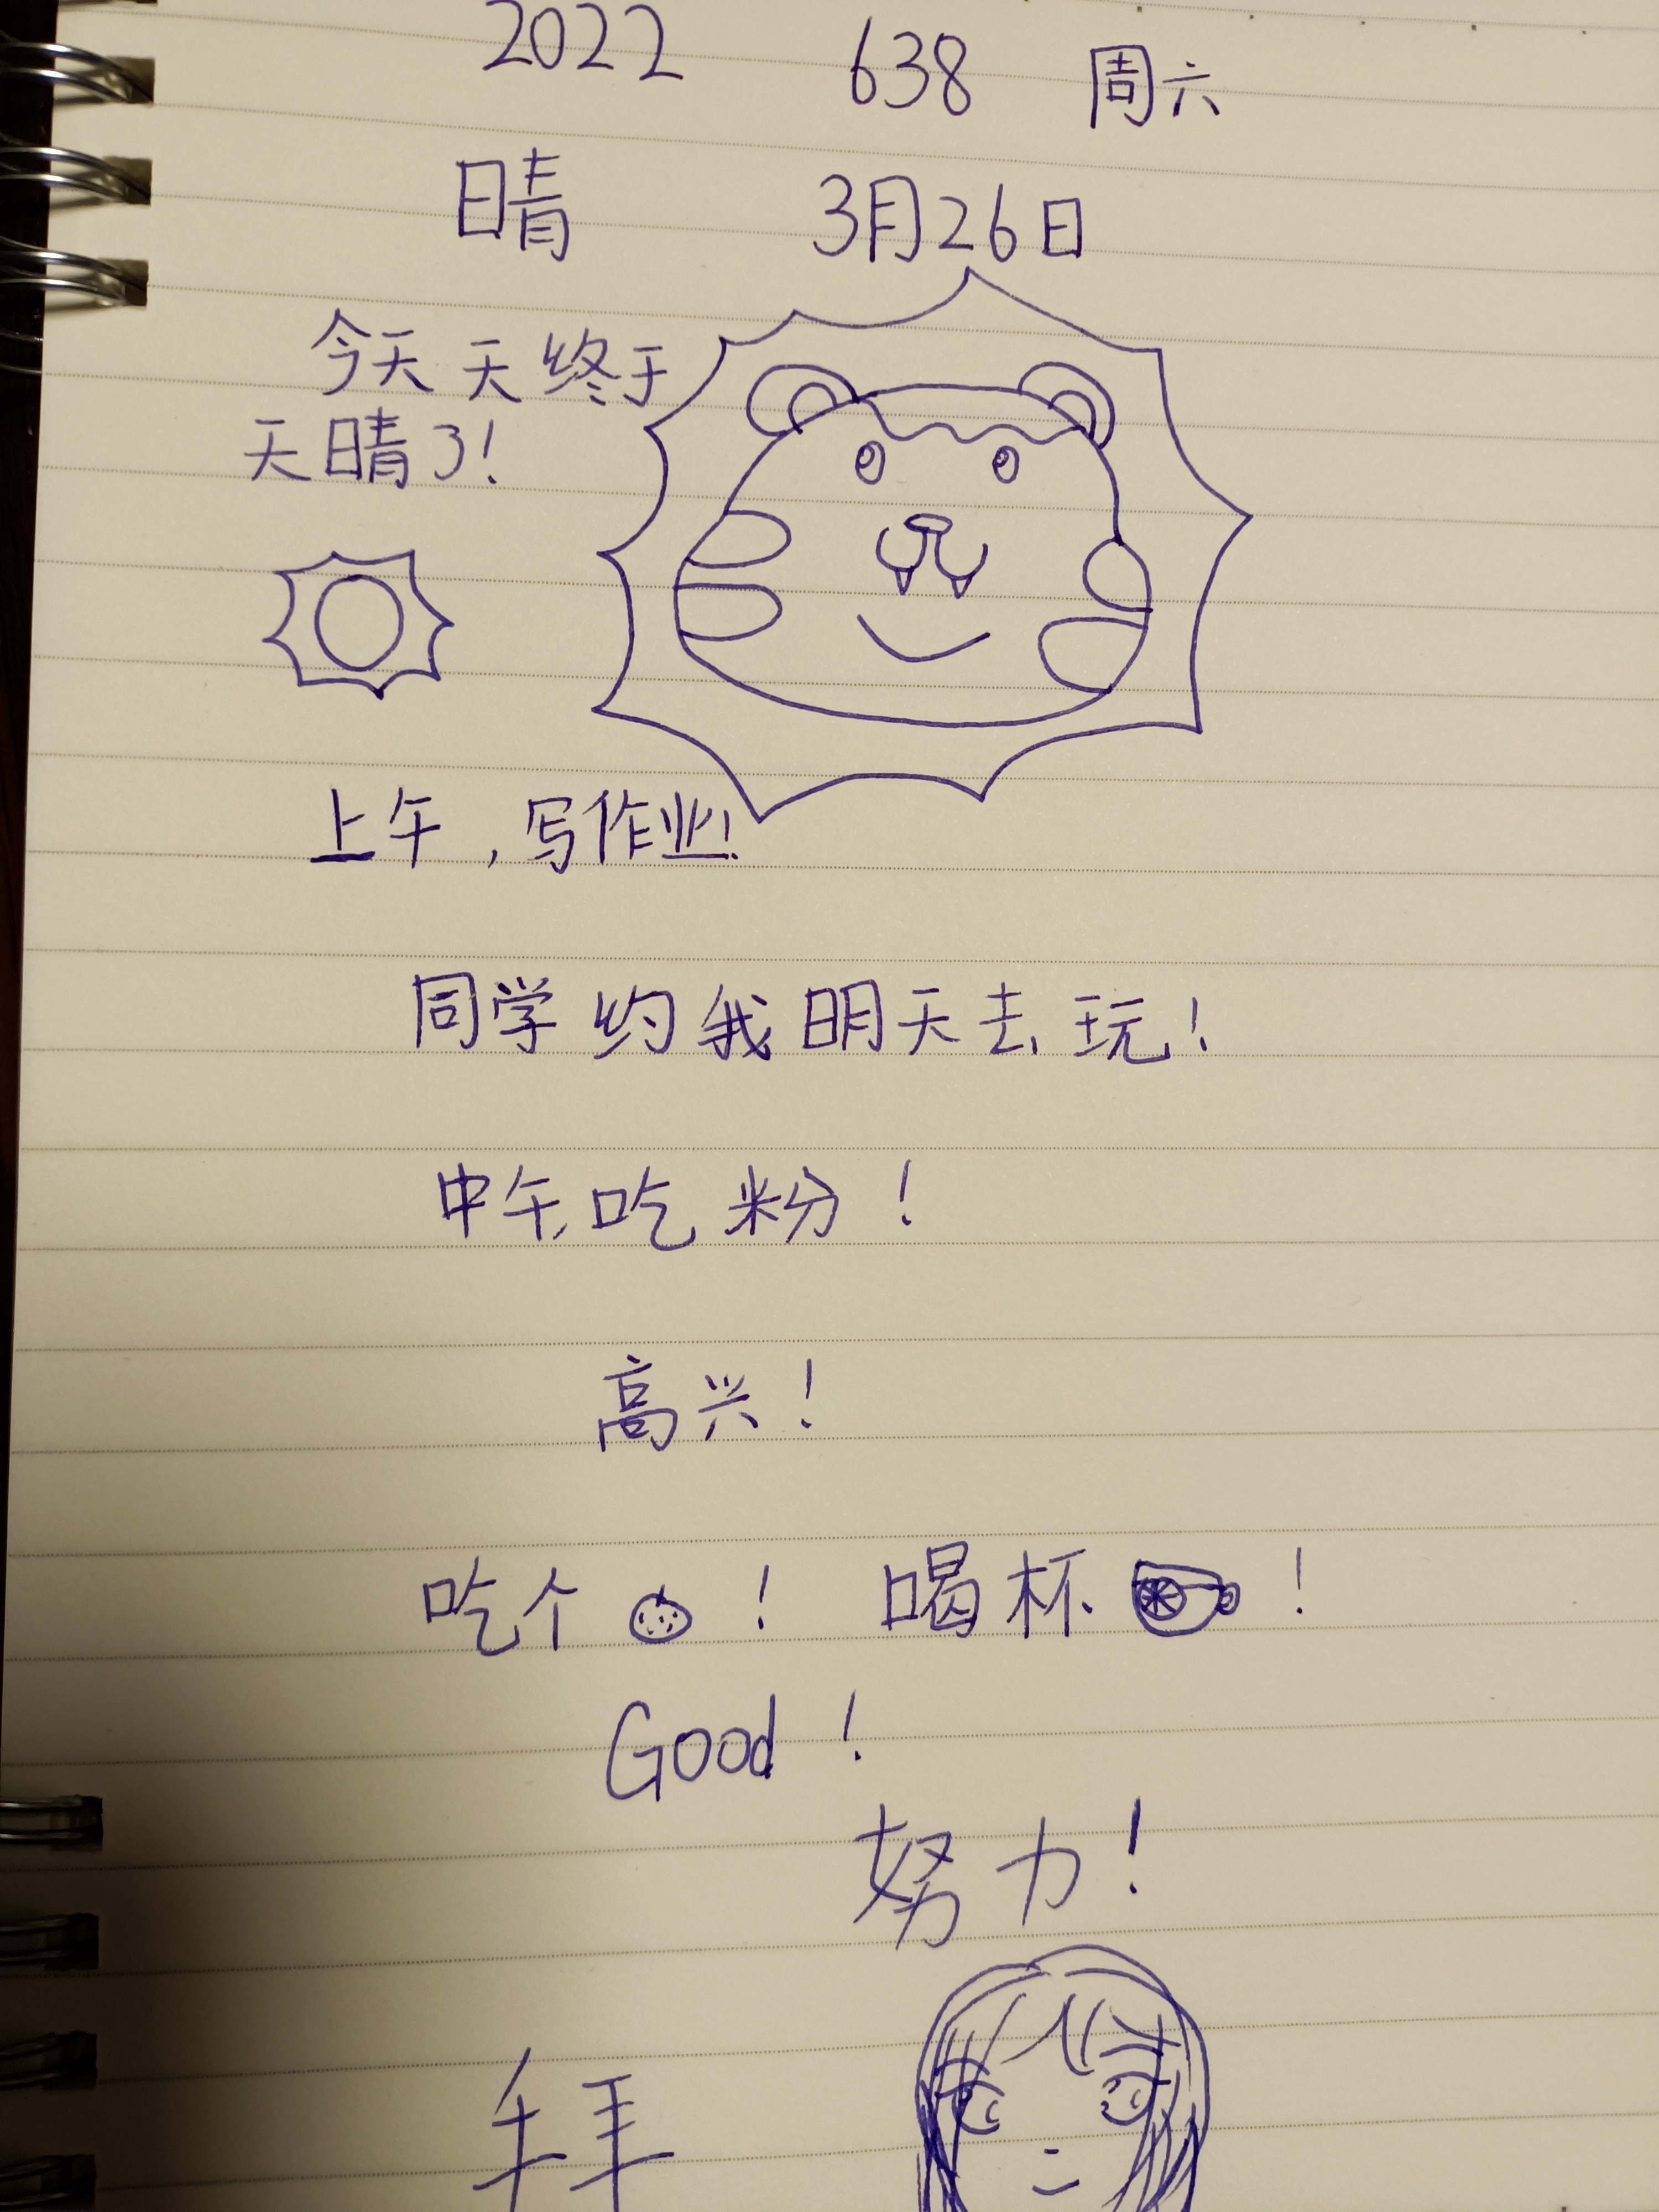 2022 638 周六
晴 3月26日
今天天终于
天晴了!
上午,写作业!
同学约我明天去玩!
中午,吃粉!
高兴!
吃个! 喝杯!
Good!
努力!
拜